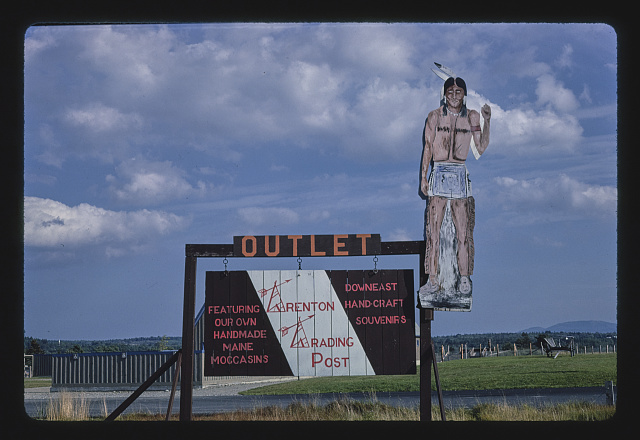 OUTLET
FEATURING
OUR OWN
HANDMADE
MAINE
MOCCASINS
TRENTON
TRADING
POST
DOWNEAST
HAND-CRAFT
SOUVENIRS